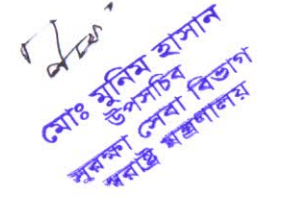 মোঃ মুনিম হাসান
উপসচিব
সুরক্ষা সেবা বিভাগ
স্বরাষ্ট্র মন্ত্রণালয়